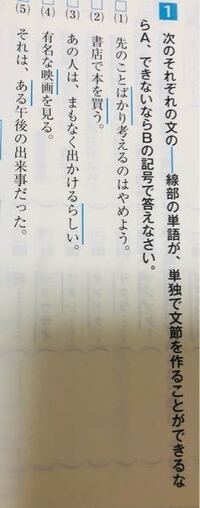 1 次のそれぞれの文の――線部の単語が、単独で文節を作ることができるな
らA、できないならBの記号で答えなさい。
(1) 先のことばかり考えるのはやめよう。
(2) 書店で本を買う。
(3) あの人は、まもなく出かけるらしい。
(4) 有名な映画を見る。
(5) それは、ある午後の出来事だった。